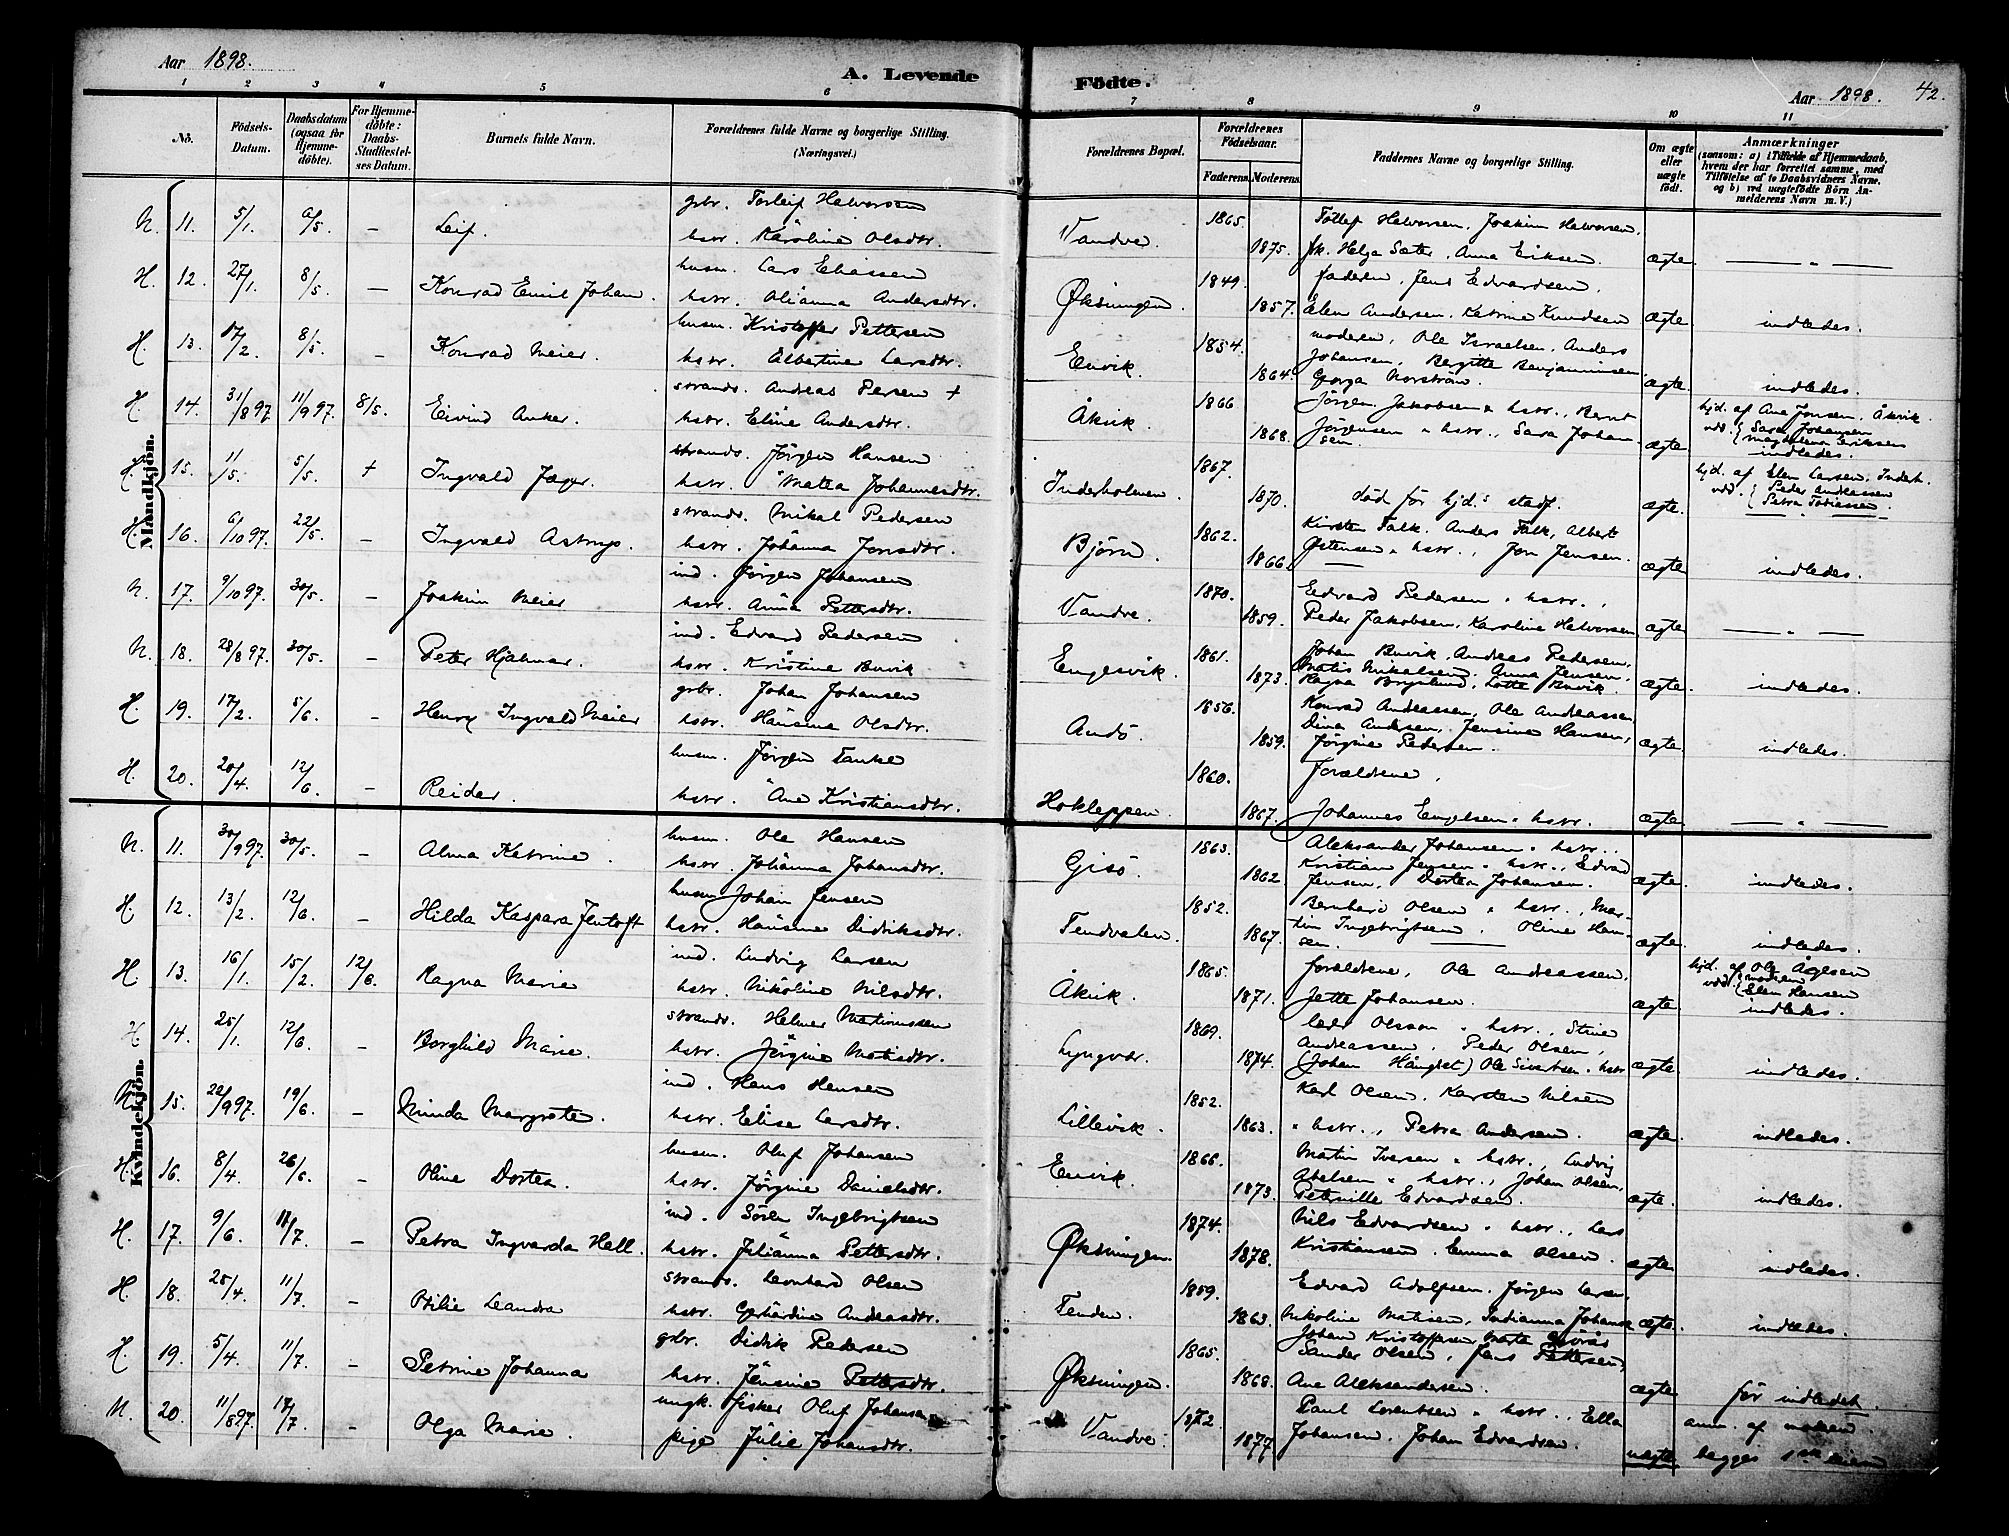 Aar 1898.
A. Levende
Födte.
Aar 1898. 42.
1 2 3 4 5 6 7 8 9 10 11
No. Födsels-Datum. Daabsdatum (ogsaa for Hjemmedöbte). For Hjemmedöbte: Daabs-Stadfæstelses Datum. Barnets fulde Navn. Forældrenes fulde Navne og borgerlige Stilling. (Næringsvei.) Forældrenes Bopæl. Forældrenes Födselsaar. Faderens Moderens Faddernes Navne og borgerlige Stilling. Om ægte eller uægte födt. Anmærkninger (saasom: a) i Tilfælde af Hjemmedaab, hvem der har forrettet samme, med Tilföielse af to Daabsvidners Navne, og b) ved uægtefödte Börn Anmelderens Navn m. V.)
Mandkjön.
N. 11. 5/1. 6/5. – Leif. gbr. Torleif Halvorsen
hstr. Karoline Olsdtr. Vandve. 1865. 1875. Halvorsen, Joakim Halvorsen,
Helga Sæter, Anna Eriksen. ægte — „ —
H. 12. 27/1. 8/5. – Konrad Emil Johan. husm. Lars Eliassen
hstr. Olianna Andersdtr. Øksningen 1849. 1857. faderen, Jens Edvardsen,
Elen Andersen, Katrine Knudsen ægte indledes.
H. 13. 17/2. 8/5. – Konrad Meier. husm. Kristoffer Pettersen
hstr. Albertine Larsdtr. Envik. 1854. 1864. moderen, Ole Israelsen, Anders
Johansen, Bergitte Benjaminsen,
Georga Norstrøm. ægte indledes.
H. 14. 31/8 97. 11/9 97. 8/5. Eivind Anker. strands. Andreas Persen +
hstr. Eline Andersdtr. Åkvik. 1866 1868. Jörgen Jakobsen „ hstr., Bernt
Jörgensen „ hstr., Sara Johansen. ægte hjd. af Ane Jonsen, Åkvik.
vdd. { Sara Johansen
Magdalena Eriksen
indledes.
H. 15. 11/5. 5/5. + Ingvald Jæger. strands. Jörgen Hansen
hstr. Matea Johannesdtr. Inderholmen. 1867. 1870. død før hjd.s stadf. ægte hjd. af Elen Larsen, Inderh.
vdd. { Peder Andreassen
Petra Tobiassen.
H. 16. 6/10 97. 22/5. – Ingvald Astrup. strands. Mikal Pedersen
hstr. Johanna Jonsdtr. Bjørn. 1862. 1866. Kirsten Falk, Anders Falk, Albert
Østensen „ hstr., Jon Jensen. ægte indledes.
N. 17. 9/10 97. 30/5. – Joakim Meier ind. Jörgen Johansen
hstr. Anna Pettersdtr. Vandve. 1870. 1859. Edvard Pedersen „ hstr.,
Peder Jakobsen, Karoline Halvorsen ægte — „ —
N. 18. 28/8 97. 30/5. – Peter Hjalmar. ind. Edvard Pedersen
hstr. Kristine Buvik Engesvik. 1861. 1873. Johan Buvik, Andreas Pedersen,
Matis Mikalsen, Anna Jensen,
Ragna, Lotte Buvik. ægte. indledes.
H. 19. 17/2. 5/6. – Henry Ingvald Meier gbr. Johan Johansen
hstr. Hansine Olsdtr. Andö. 1856. 1859. Konrad Andreassen, Ole Andreassen,
Dina Andersen, Jensine Hansen,
Jörgine Pedersen. ægte indledes.
H. 20. 20/4. 12/6. – Reidar. husm. Jörgen Tanke
hstr. Ane Kristiansdtr. Hokleppen. 1860. 1867. Forældrene,
Johannes Engelsen „ hstr. ægte — „ —
Kvindekjön.
N. 11. 30/9 97. 30/5. – Alma Katrine. husm. Ole Hansen
hstr. Johanna Johansdtr. Gisö. 1863. 1862. Aleksander Johansen „ hstr.,
Kristian Jensen „ hstr., Edvard
Jensen, Dortea Johansen. ægte indledes.
H. 12. 13/2. 12/6. – Hilda Kaspara Jentoft husm. Johan Jensen
hstr. Hansine Didriksdtr. Tendvalen. 1852. 1867. Bernhard Olsen „ hstr., Martin
Ingebrigtsen, Oline Hansen. ægte indledes.
H. 13. 16/1. 15/2. 12/6. Ragna Marie ind. Ludvig Larsen
hstr. Nikoline Nilsdtr. Åkvik. 1865. 1871. forældrene, Ole Andreassen,
Jette Johansen. ægte hjd. af Ole Ågesen
vdd. { moderen
Elen Hansen
indledes.
H. 14. 25/1. 12/6. – Borghild Marie. strands. Helmer Martinussen
hstr. Jörgine Matisdtr. Lyngvær. 1869. 1874. Olsson „ hstr., Stine
Andreassen, Peder Olsen,
(Johan) Ole Sivertsen „ hstr ægte. indledes.
N. 15. 22/9 97. 19/6. – Minda Margrete. ind. Hans Hansen
hstr. Elise Larsdtr. Lillevik. 1852. 1863. Karl Olsen, Karsten Nilsen
„ hstr., Petra Andersen. ægte. indledes.
H. 16. 8/4. 26/6. – Oline Dortea. husm. Oluf Johansen
hstr. Jörgine Danielsdtr. Envik. 1866. 1873. Martin Iversen „ hstr., Ludvig
Abelsen „ hstr., Johan Olsen,
Peternille Edvardsen. ægte. indledes.
H. 17. 9/6. 11/7. – Petra Ingvarda Hall. ind. Sören Ingebrigtsen
hstr. Julianna Pettersdtr. Øksningen. 1874. 1878. Nils Edvardsen „ hstr., Lars
Kristiansen, Emma Olsen. ægte indledes.
H. 18. 25/4. 11/7. – Otilie Leandra strands. Leonhard Olsen
hstr. Gerhardine Andreasdtr. Tenden. 1859. 1863. Edvard Adolfsen, Jörgen Larsen,
Nikoline Matisen, Indianna Johansen ægte. indledes.
H. 19. 5/4. 11/7. – Petrine Johanna gbr. Didrik Pedersen
hstr. Jensine Pettersdtr. Øksningen. 1865. 1868. Johan Kristoffersen,
Sander Olsen, Jens Pettersen,
Ane Aleksandersen. ægte før indledet.
N. 20. 11/8 97. 17/7. – Olga Marie. ungk. fisker Oluf Johansen
pige Julie Johansdtr. Vandve. 1872. 1877 Paul Lorentsen „ hstr., Ella
Johansen, Johan Edvardsen. uægte anm. af moderen.
begges 1ste